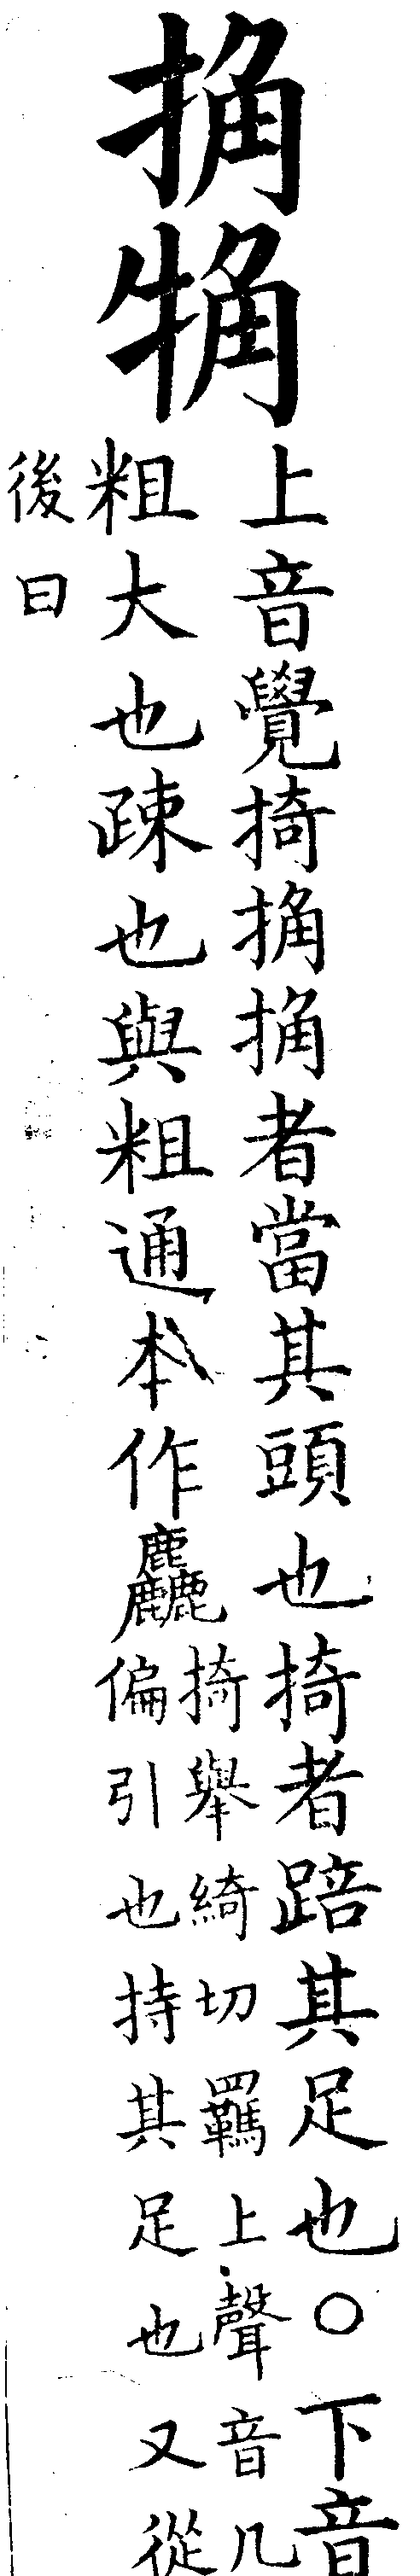 捔牭
上音覺掎捔捔者當其頭也掎者踣其足也○下音
粗大也疎也與粗通本作麤
掎舉綺切羈上聲音几
偏引也持其足也又從
後曰